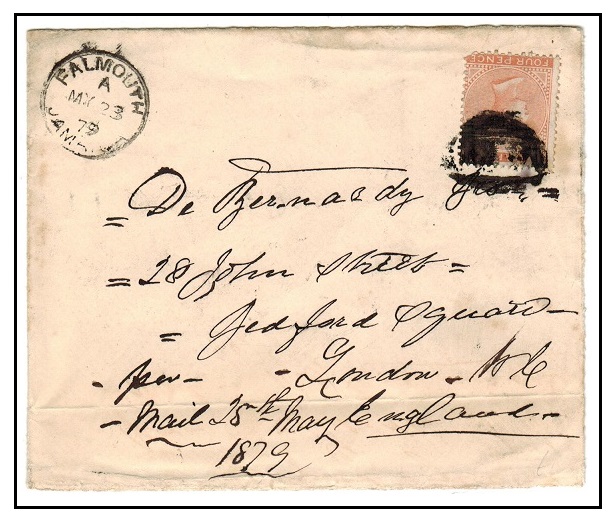 FALMOUTH
A
MY 23
79
JAMAICA
FOUR PENCE
De Bernardy
= 28 John Street =
= Bedford Square -
- per - - London - W C
- Mail 25th May England -
1879